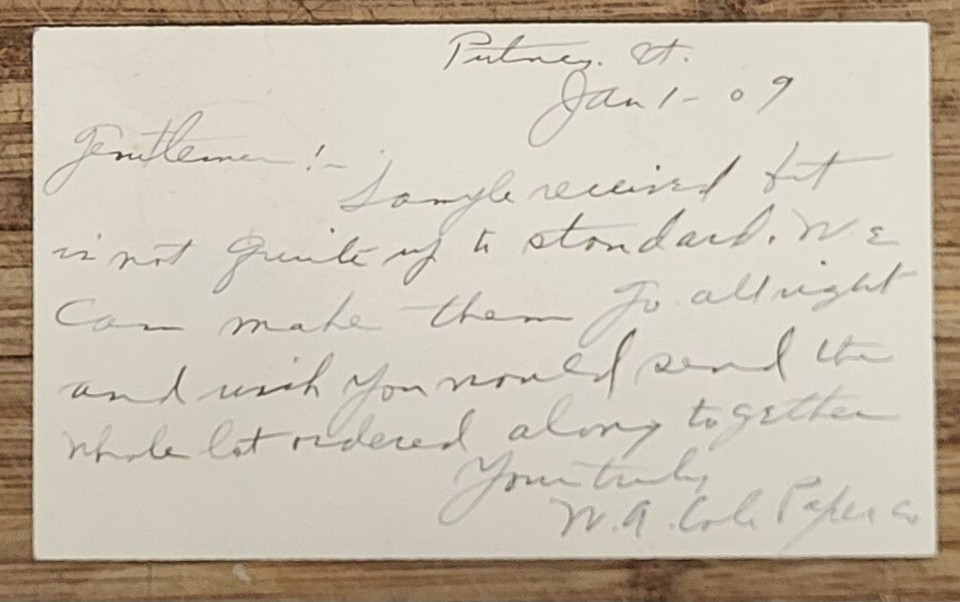 Putney. Vt.
Jan 1- 09
Gentlemen !-
Sample received but
is not quite up to standard. We
Can make them go all right
and wish you would send the
whole lot ordered along together
Yours truly
W. A. Cole Paper Co